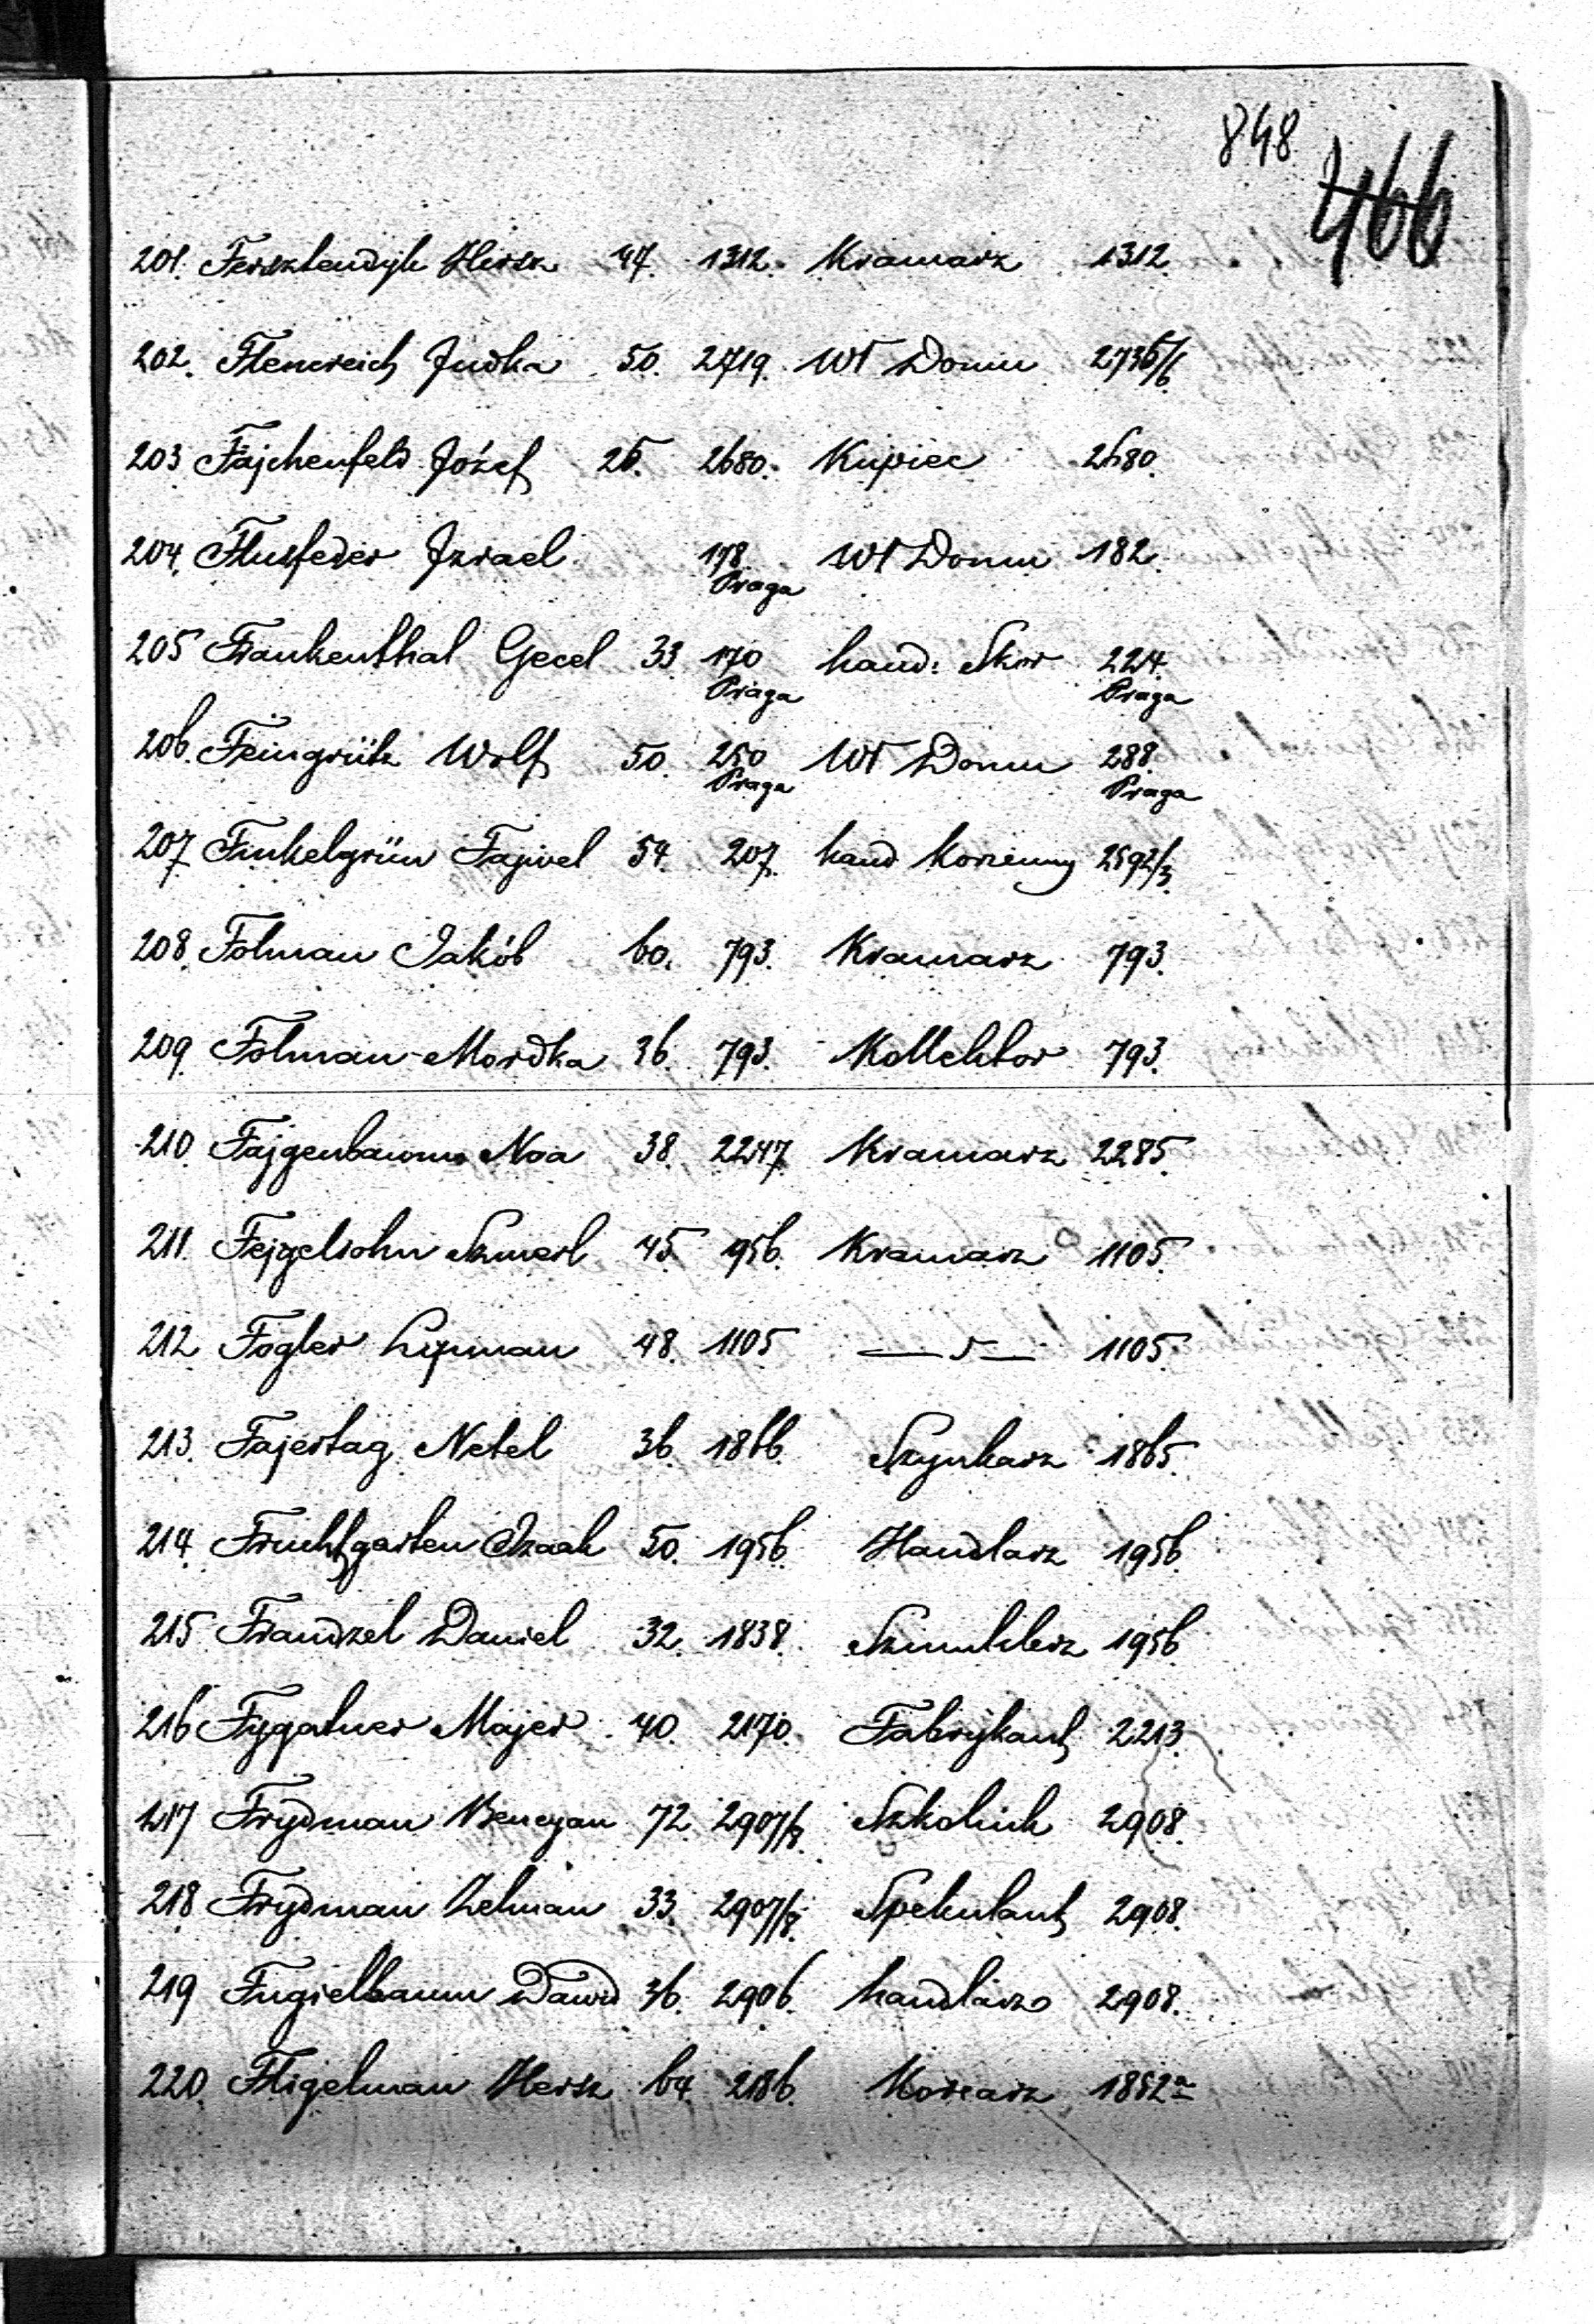 848
466
201. Fersztendyk Hersz 44. 1312. Kramarz 1312.
202. Flenreich Judka 50. 2719. Wł Domu 2736/6
203 Fajchenfeld Józef 25. 2680. Kupiec 2680.
204. Flusfeder Izrael 178. Wł Domu 182.
Praga
205 Frankenthal Gecel 33 170 hand: Skor 224.
Praga Praga
206. Feingrütz Wolf 50. 250 Wł Domu 288.
Praga Praga
207 Finkelgrün Fajwel 54. 207. hand Korzenny 2592/3.
208. Folman Jakób 60. 793. Kramarz 793.
209. Folman Mordka 36. 793. Kollektor 793.
210. Fajgenbaum Noa 38. 2247. Kramarz 2285.
211. Fejgelsohn Szmerl 45. 956. Kramarz 1105.
212 Fogler Lipman 48. 1105 1105.
213. Fajertag Netel 36. 1866. Szynkarz 1865.
214. Fruchtgarten Izaak 50. 1956. Handlarz 1956.
215 Frandzel Daniel 32. 1838. Szmuklerz 1956
216 Fygatner Majer 40. 2170. Fabrykant 2213.
217 Frydman Bencyan 72. 2907/8. Szkolnik 2908.
218 Frydman Zelman 33. 2907/8. Spekulant 2908.
219 Fugielbaum Dawid 36. 2906. handlarz 2908.
220. Fligelman Hersz 64. 2186. 1852a